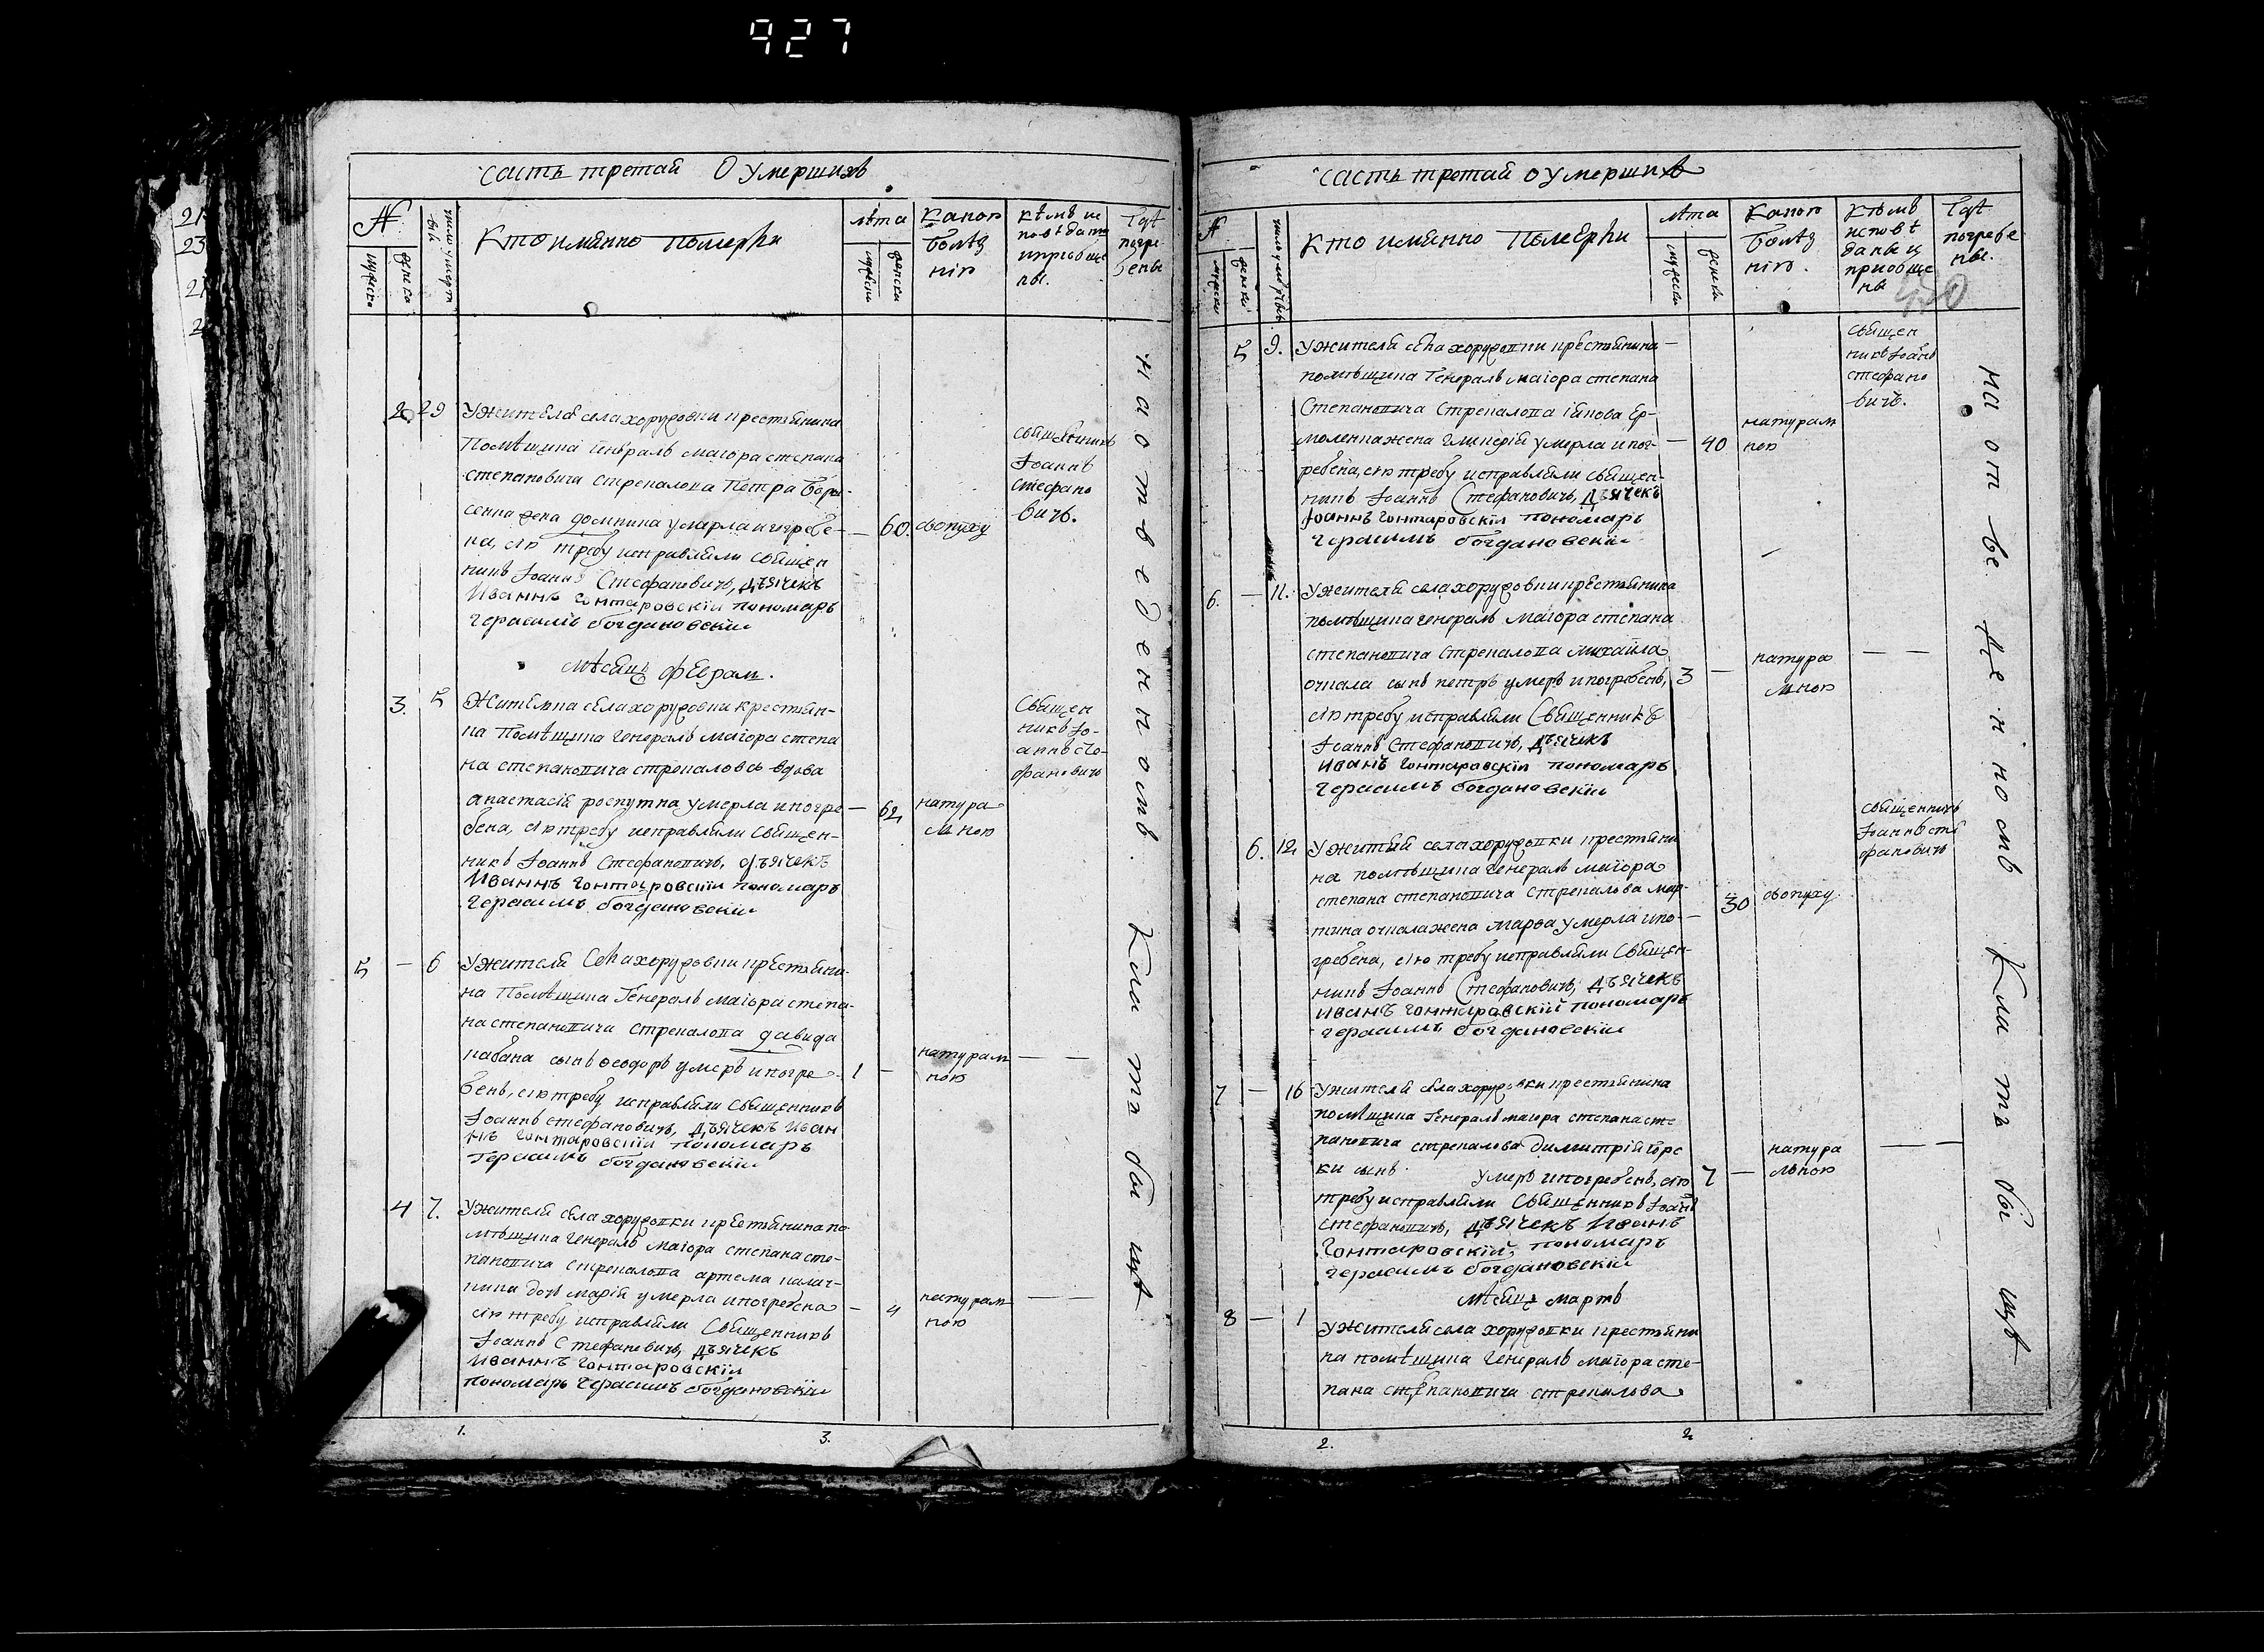 927
часть третая О умершихъ
№
мужеска
женска
число умерт
вій
Кто имянно Померли
лѣта
мужеска
женска
Какою
болѣз
нію
кѣмъ ис
повѣданы
и приобще
ны.
Гдѣ
погре
бены
2. 29 У жителя села хоружовки крестянина
Помѣщика генералъ маіора степана
степановича стрекалова Петра бори-
сенка жена домникия умерла и погребе-
на, сію требу исправляли священ
никъ Іоаннъ Стефановичъ, Дъячекъ
Иваннъ Гонтаровскій пономарь
Герасимъ богдановскій
— 60. св опуху
священникъ
Іоаннъ
Стефано
вичъ.
мѣсяцъ феврал.
3. 5 Жителка села хоружовки крестян-
ка Помѣщика генералъ маіора степа
на степановича стрекалова вдова
анастасія роспутна умерла и погре
бена, сію требу исправляли Священ-
никъ Іоаннъ Стефановичъ, дъячекъ
Иваннъ Гонтаровскій пономарь
Герасимъ богдановскій
— 62 натура
лною
Священ
никъ Іо-
аннъ сте-
фановичъ
5 — 6 У жителя Села хоружовки крестяни-
на Помѣщика Генералъ маіора степа-
на степановича стрекалова давида
кабана сынъ Феодоръ умеръ и погре-
бенъ, сію требу исправляли Священникъ
Іоаннъ стефановичъ, Дъячекъ Иван
нъ Гонтаровскій пономарь
Герасимъ богдановскій
1 — натурал
ною — —
4 7. У жителя села хоружовки крестянина по
мѣщика генералъ маіора степана сте-
пановича стрекалова артема
дочь марія умерла и погребена
сію требу исправляли Священникъ
Іоаннъ Стефановичъ, Дъячекъ
Иваннъ Гонтаровскій
пономарь Герасимъ богдановскій
— 4 натурал
ною — —
На отведенномъ. Кла тъ би щѣ
1. 3.
часть третая о умершихъ
№
мужеска
женска
Кто имянно Померли
лѣта
мужеска
женска
Какою
болѣз
нію.
Кѣмъ
исповѣ
даны и
приобще
ны
Гдѣ
погребе
ны.
5 9. У жителя села хоружовки крестянина
помѣщика Генералъ маіора степана
Степановича Стрекалова Ер-
моленка жена гликерія умерла и пог-
ребена, сію требу исправляли священ-
никъ Іоаннъ Стефановичъ, Дъячекъ
Іоаннъ Гонтаровскій пономарь
Герасимъ богдановскій
— 40 натурал
ною
Священ
никъ Іоаннъ
стефано
вичъ.
6. — 11. У жителя села хоружовки крестянина
помѣщика генералъ маіора степана
степановича стрекалова михайла
очкала сынъ петръ умеръ и погребенъ,
сію требу исправляли Священникъ
Іоаннъ Стефановичъ, дъячекъ
Иванъ Гонтаровскій пономарь
Герасимъ богдановскій
3 — натура
лною — —
6. 12 У жителя села хоружовки крестяни
на помѣщика генералъ маіора
степана степановича стрекалова мар-
тина очкала жена марфа умерла и по-
гребена, сію требу исправляли Священ-
никъ Іоаннъ Стефановичъ, Дъячекъ
Иванъ Гонтаровскій пономарь
Герасимъ богдановскій
30 св опуху
Священникъ
Іоаннъ сте
фановичъ
7 — 16 У жителя села хоружовки крестянина
помѣщика Генералъ маіора степана сте
пановича стрекалова димитрія
ки сынъ умеръ и погребенъ, сію
требу исправляли Священникъ Іоаннъ
Стефановичъ, Дъячекъ Іванъ
Гонтаровскій, пономарь
Герасимъ богдановскій
7 — натура
лною — —
Мѣсяцъ мартъ
8 — 1 У жителя села хоружовки крестяни
на помѣщика генералъ маіора сте-
пана степановича стрекалова
на отведенномъ Кла тъ би щѣ
2. 2